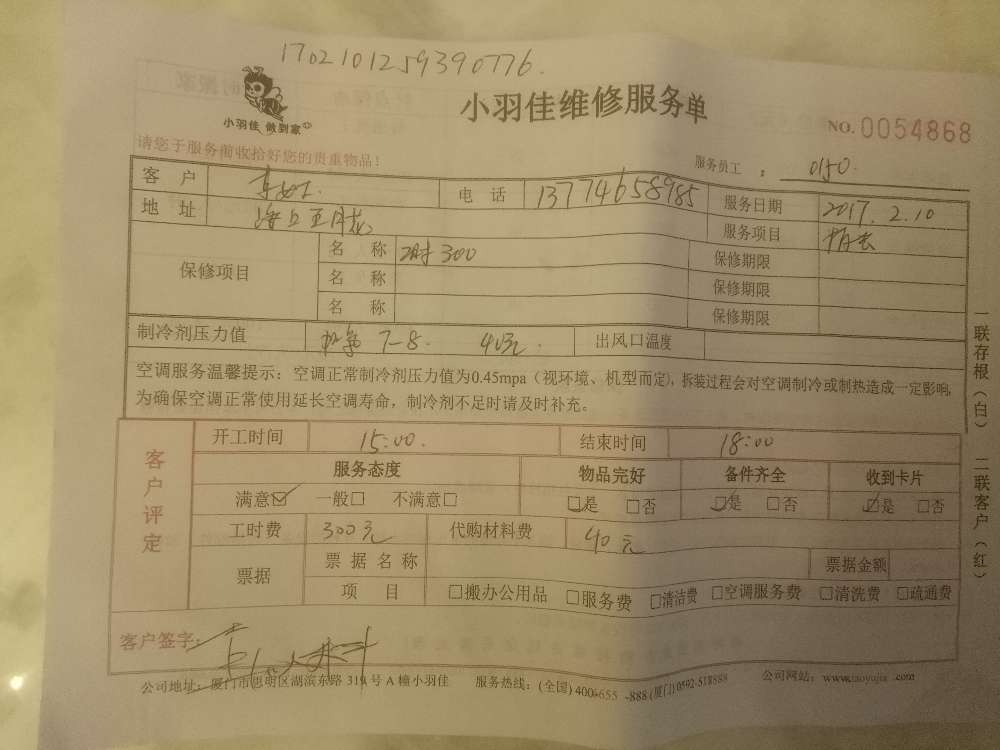 1702101259390776.
小羽佳 做到家
小羽佳维修服务单
NO. 0054868
请您于服务前收拾好您的贵重物品！
服务员工： 0150.
客 户 电 话 13774658985 服务日期 2017.2.10
地 址 服务项目
保修项目 名 称 300 保修期限
名 称 保修期限
名 称 保修期限
制冷剂压力值 7-8. 40元. 出风口温度
空调服务温馨提示：空调正常制冷剂压力值为0.45mpa（视环境、机型而定），拆装过程会对空调制冷或制热造成一定影响，
为确保空调正常使用延长空调寿命，制冷剂不足时请及时补充。
客户评定
开工时间 15:00. 结束时间 18:00
服务态度 物品完好 备件齐全 收到卡片
满意☑ 一般□ 不满意□ ☑是 □否 ☑是 □否 ☑是 □否
工时费 300元 代购材料费 40元
票据 票据名称 票据金额
项 目 □搬办公用品 □服务费 □清洁费 □空调服务费 □清洗费 □疏通费
客户签字：
公司地址：厦门市思明区湖滨东路319号A幢小羽佳 服务热线：(全国) 400-655-888 (厦门) 0592-518888 公司网站：www.xiaoyujia.com
一联存根（白） 二联客户（红）